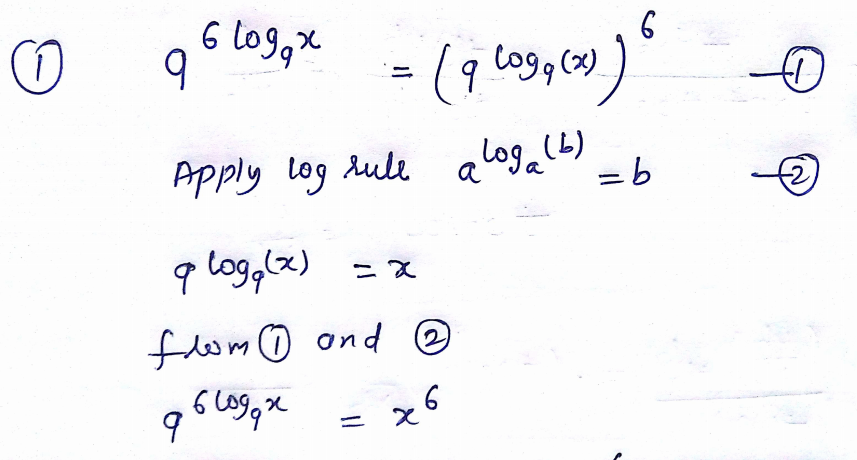 ① 9^{6 log₉x} = (9^{log₉(x)})^6 —①
Apply log rule a^{logₐ(b)} = b —②
9^{log₉(x)} = x
from ① and ②
9^{6 log₉x} = x^6